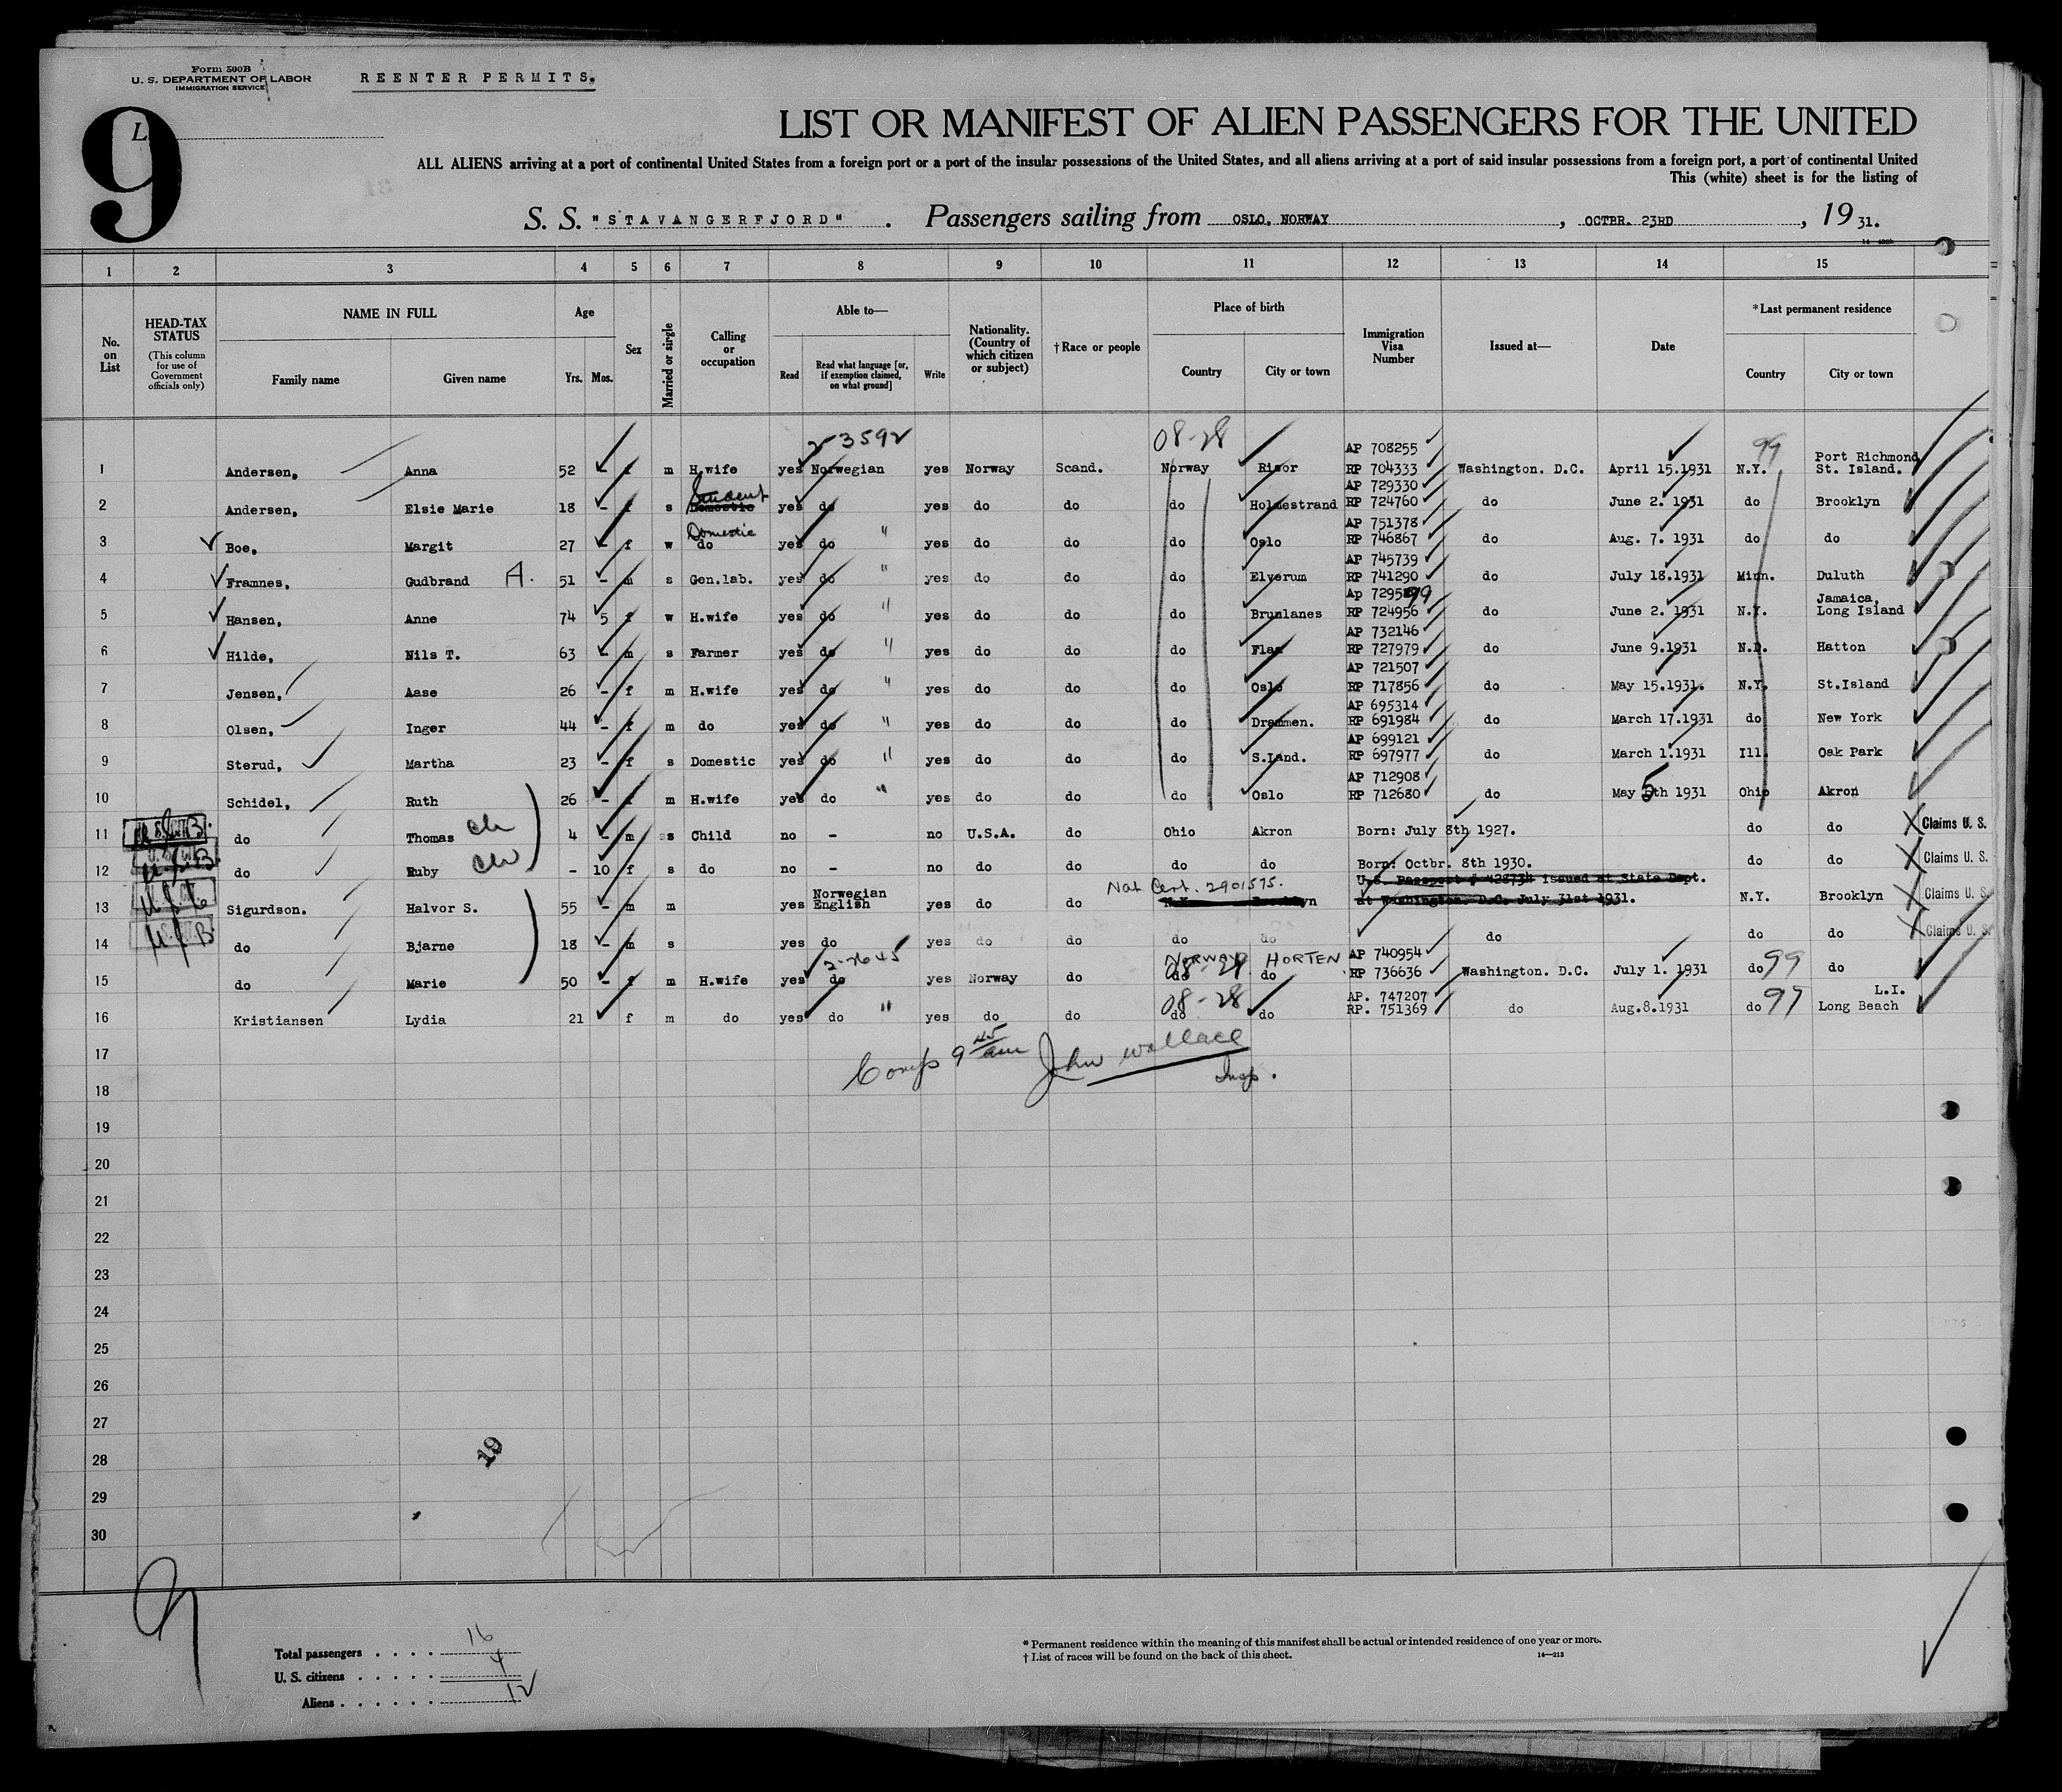 Form 500B
U. S. DEPARTMENT OF LABOR
IMMIGRATION SERVICE
REENTER PERMITS.
9
L
LIST OR MANIFEST OF ALIEN PASSENGERS FOR THE UNITED
ALL ALIENS arriving at a port of continental United States from a foreign port or a port of the insular possessions of the United States, and all aliens arriving at a port of said insular possessions from a foreign port, a port of continental United
This (white) sheet is for the listing of
S. S. "STAVANGERFJORD" . Passengers sailing from OSLO, NORWAY , OCTBR. 23RD , 19 31.
1 2 3 4 5 6 7 8 9 10 11 12 13 14 15
No. on List
HEAD-TAX STATUS
(This column for use of Government officials only)
NAME IN FULL
Family name Given name
Age
Yrs. Mos.
Sex
Married or single
Calling or occupation
Able to—
Read Read what language [or, if exemption claimed, on what ground] Write
Nationality. (Country of which citizen or subject)
† Race or people
Place of birth
Country City or town
Immigration Visa Number
Issued at—
Date
*Last permanent residence
Country City or town
23592 08-28 AP 708255 99 Port Richmond
1 Andersen, Anna 52 - f m H.wife yes Norwegian yes Norway Scand. Norway Risor RP 704333 Washington. D.C. April 15.1931 N.Y. St. Island.
Student AP 729330
2 Andersen, Elsie Marie 18 - f s Domestic yes do yes do do do Holmestrand RP 724760 do June 2. 1931 do Brooklyn
Domestic AP 751378
3 Boe, Margit 27 - f w do yes do " yes do do do Oslo RP 746867 do Aug. 7. 1931 do do
AP 745739
4 Framnes, Gudbrand A. 51 - m s Gen.lab. yes do " yes do do do Elverum RP 741290 do July 18.1931 Minn. Duluth
Jamaica,
5 Hansen, Anne 74 5 f w H.wife yes do " yes do do do Brunlanes RP 724956 do June 2. 1931 N.Y. Long Island
AP 732146
6 Hilde, Nils T. 63 - m s Farmer yes do " yes do do do RP 727979 do June 9.1931 N.D. Hatton
AP 721507
7 Jensen, Aase 26 - f m H.wife yes do " yes do do do Oslo RP 717856 do May 15.1931. N.Y. St.Island
AP 695314
8 Olsen, Inger 44 - f m do yes do " yes do do do Drammen. RP 691984 do March 17.1931 do New York
AP 699121
9 Sterud, Martha 23 - f s Domestic yes do " yes do do do S.Land. RP 697977 do March 1.1931 Ill. Oak Park
AP 712908
10 Schidel, Ruth 26 - f m H.wife yes do " yes do do do Oslo RP 712680 do May 5th 1931 Ohio Akron
11 do Thomas 4 - m s Child no - no U.S.A. do Ohio Akron Born: July 8th 1927. do do X Claims U. S.
12 do Ruby - 10 f s do no - no do do do do Born: Octbr. 8th 1930. do do X Claims U. S.
Norwegian Nat. Cert. 2901575. U.S. Passport # 428734 issued at State Dept.
13 Sigurdson. Halvor S. 55 - m m yes English yes do do N.Y. Brooklyn at Washington. D.C. July 31st 1931. N.Y. Brooklyn X Claims U. S.
14 do Bjarne 18 - m s yes do yes do do do do do do do X Claims U. S.
2-2645 NORWAY HORTEN AP 740954
15 do Marie 50 - f m H.wife yes do yes Norway do 08-28 do do RP 736636 Washington. D.C. July 1. 1931 do 99 do
08-28 AP. 747207 L.I.
16 Kristiansen Lydia 21 f m do yes do " yes do do do do RP. 751369 do Aug.8.1931 do 97 Long Beach
17 Comp 9 45 am John Wallace
18 Insp.
19
20
21
22
23
24
25
26
27
28 19
29
30
9
Total passengers . . . . 16
U. S. citizens . . . . . 4
Aliens . . . . . . 12
* Permanent residence within the meaning of this manifest shall be actual or intended residence of one year or more.
† List of races will be found on the back of this sheet. 14—213